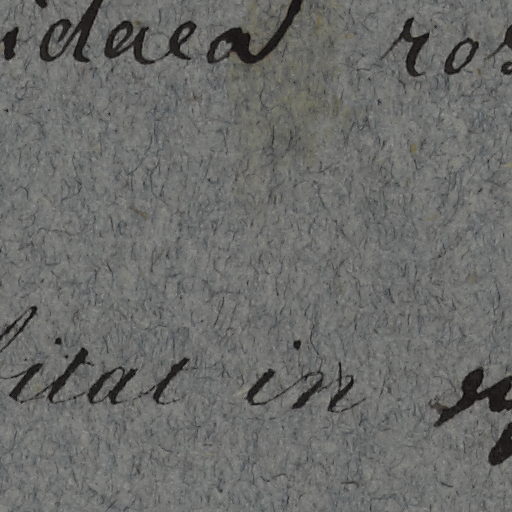 idaea ros
bitat in